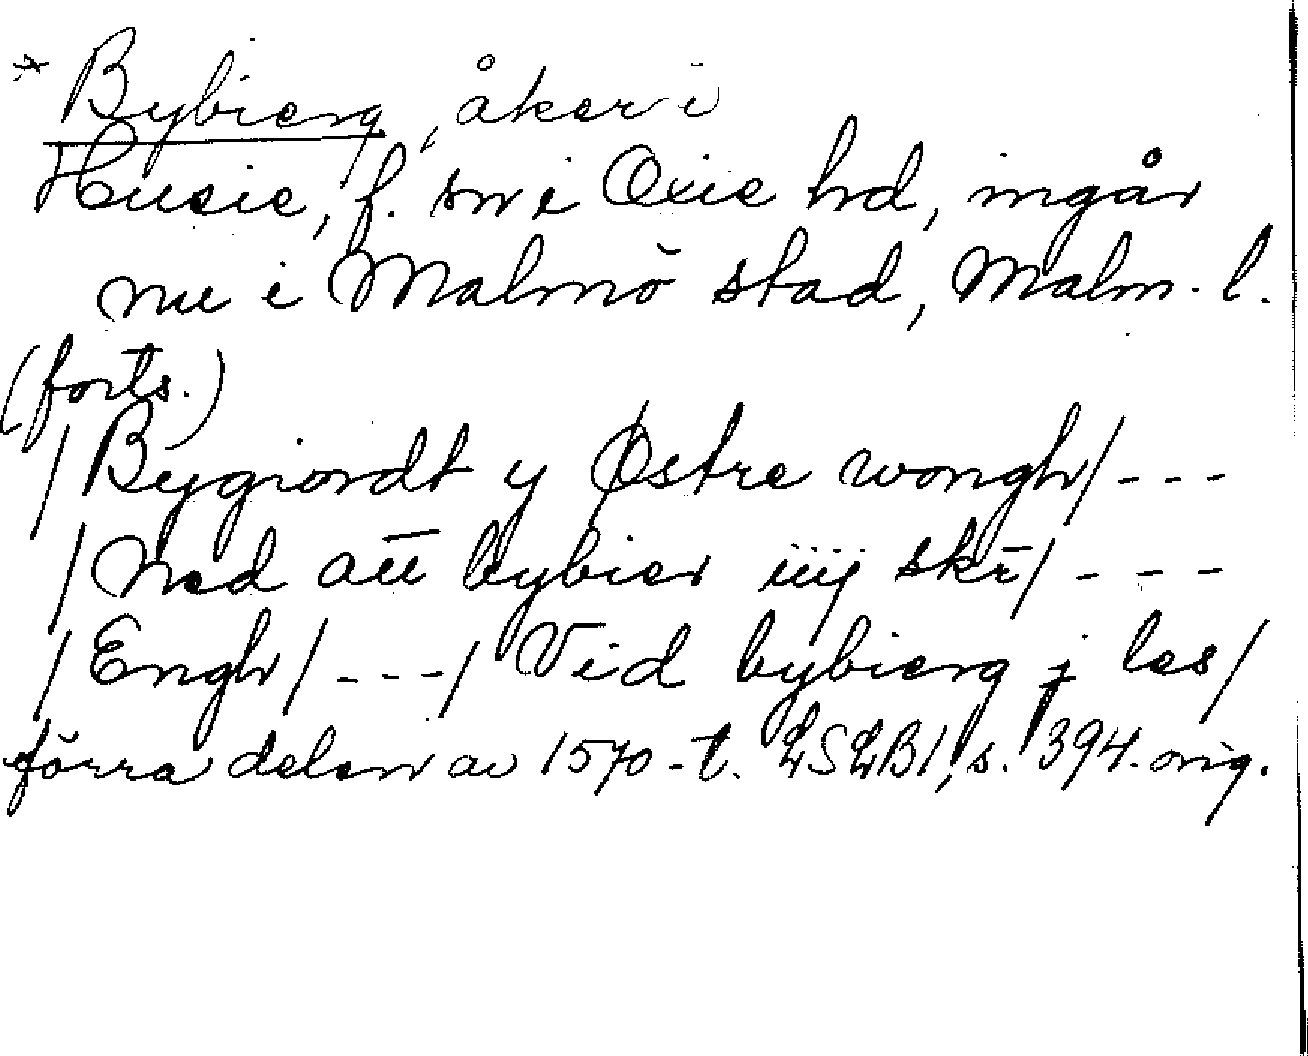 * Bybierg, åker i
Husie, f. sn i Oxie hd, ingår
nu i Malmö stad, Malm. l.
(forts.)
/Bygiordt y Østre wongh/ - - -
/Ned att bybier iiij skr̄/ - - -
/Engh/ - - - / Vid bybierg j les/
förra delen av 1570-t. LSLB1, s. 394. orig.